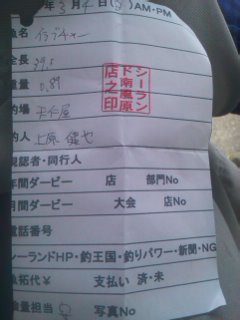 年3月4日( )AM・PM
魚名 イラブチャー
全長 39.5
重量 0.89
釣場
釣人 上原 健也
現認者・同行人
年間ダービー 店 部門No
ダービー 大会 店No
電話番号
シーランドHP・釣王国・釣りパワー・新聞・NG
魚拓代￥ 支払い 済・未
検量担当 写真No
シーラン
ド南風原
店之印